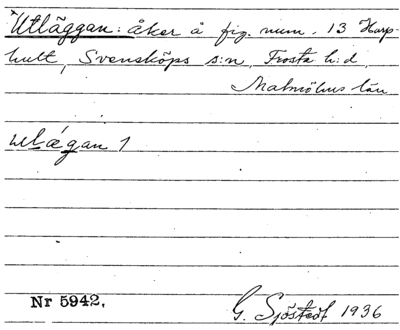 Utläggan: åker å fig. num. 13 Harp-
hult, Svensköps s:n, Frosta h:d,
Malmöhus län
utlægan 1
Nr 5942.
G. Sjöstedt 1936